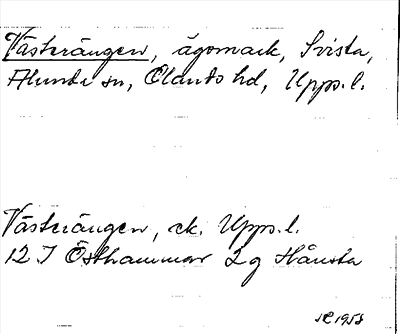 Västerängen, ägomark, Svista,
Alunda sn, Olands hd, Upps. l.
Västerängen, ek. Upps. l.
12 I Östhammar 2g Hånsta
1958